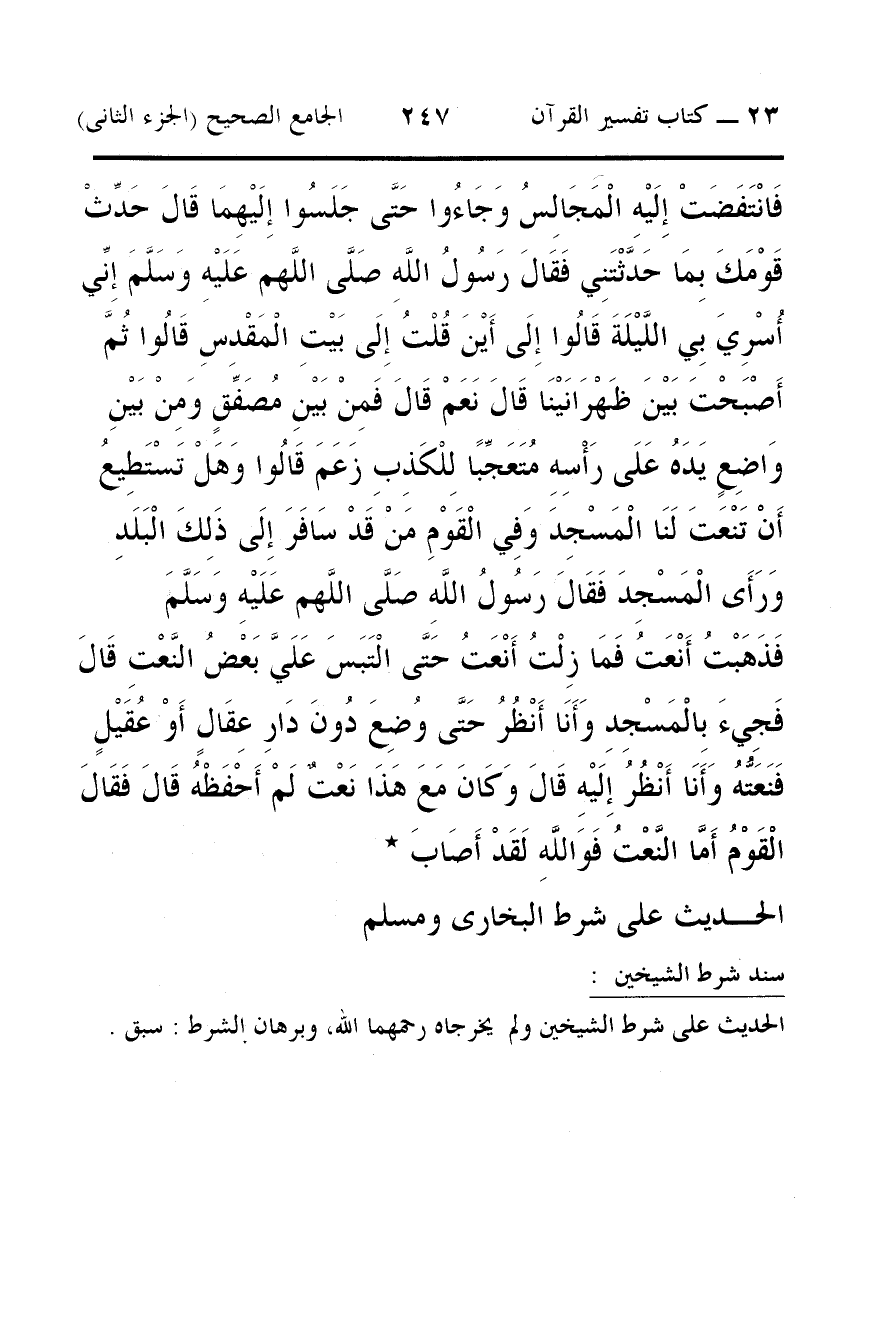 ٢٣ ــ كتاب تفسير القرآن ٢٤٧ الجامع الصحيح (الجزء الثانى)
فَانْتَفَضَتْ إِلَيْهِ الْمَجَالِسُ وَجَاءُوا حَتَّى جَلَسُوا إِلَيْهِمَا قَالَ حَدِّثْ
قَوْمَكَ بِمَا حَدَّثْتَنِي فَقَالَ رَسُولُ اللَّهِ صَلَّى اللهم عَلَيْهِ وَسَلَّمَ إِنِّي
أُسْرِيَ بِي اللَّيْلَةَ قَالُوا إِلَى أَيْنَ قُلْتُ إِلَى بَيْتِ الْمَقْدِسِ قَالُوا ثُمَّ
أَصْبَحْتَ بَيْنَ ظَهْرَانَيْنَا قَالَ نَعَمْ قَالَ فَمِنْ بَيْنِ مُصَفِّقٍ وَمِنْ بَيْنِ
وَاضِعٍ يَدَهُ عَلَى رَأْسِهِ مُتَعَجِّبًا لِلْكَذِبِ زَعَمَ قَالُوا وَهَلْ تَسْتَطِيعُ
أَنْ تَنْعَتَ لَنَا الْمَسْجِدَ وَفِي الْقَوْمِ مَنْ قَدْ سَافَرَ إِلَى ذَلِكَ الْبَلَدِ
وَرَأَى الْمَسْجِدَ فَقَالَ رَسُولُ اللَّهِ صَلَّى اللهم عَلَيْهِ وَسَلَّمَ
فَذَهَبْتُ أَنْعَتُ فَمَا زِلْتُ أَنْعَتُ حَتَّى الْتَبَسَ عَلَيَّ بَعْضُ النَّعْتِ قَالَ
فَجِيءَ بِالْمَسْجِدِ وَأَنَا أَنْظُرُ حَتَّى وُضِعَ دُونَ دَارِ عِقَالٍ أَوْ عُقَيْلٍ
فَنَعَتُّهُ وَأَنَا أَنْظُرُ إِلَيْهِ قَالَ وَكَانَ مَعَ هَذَا نَعْتٌ لَمْ أَحْفَظْهُ قَالَ فَقَالَ
الْقَوْمُ أَمَّا النَّعْتُ فَوَاللَّهِ لَقَدْ أَصَابَ *
الحـــديث على شرط البخارى ومسلم
سند شرط الشيخين :
الحديث على شرط الشيخين ولم يخرجاه رحمهما الله، وبرهان الشرط : سبق .